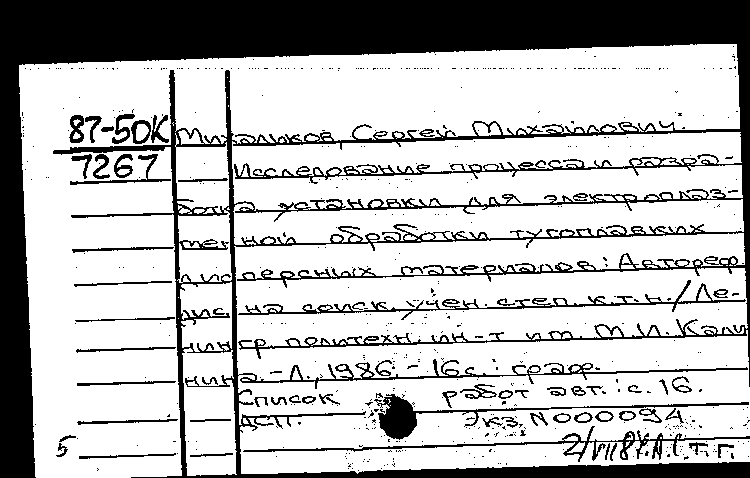 87-50К Михальков, Сергей Михайлович.
7267 Исследование процесса и разра-
ботка установки для электроплаз-
менной обработки тугоплавких
дисперсных материалов: Автореф.
дис. на соиск. учен. степ. к.т.н./Ле-
нингр. политехн. ин-т им. М.И. Кали
нина.-Л.,1986.-16с.: граф.
Список работ авт.: с.16.
ДСП. Экз.N000094.
5